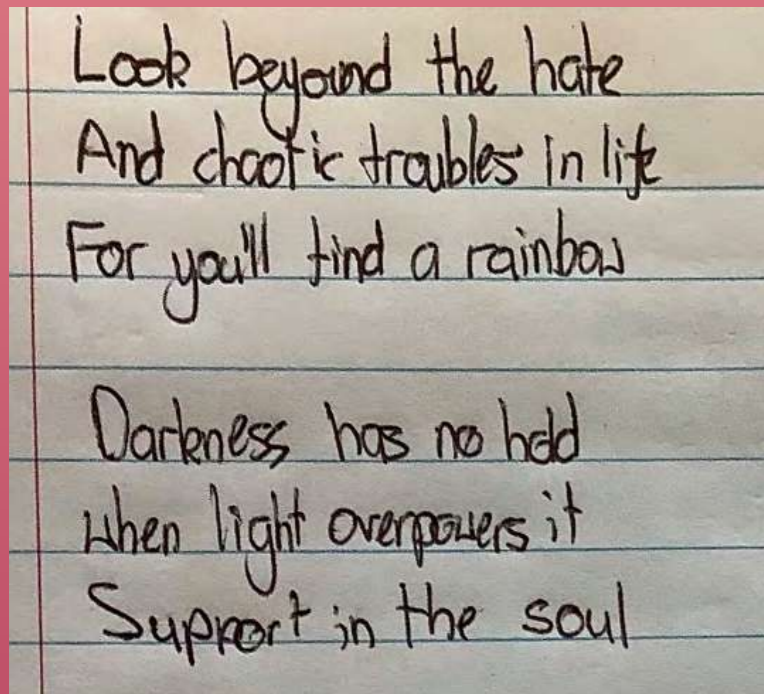 Look beyound the hate
And chaotic troubles in life
For you'll find a rainbow
Darkness has no hold
when light overpowers it
Support in the soul